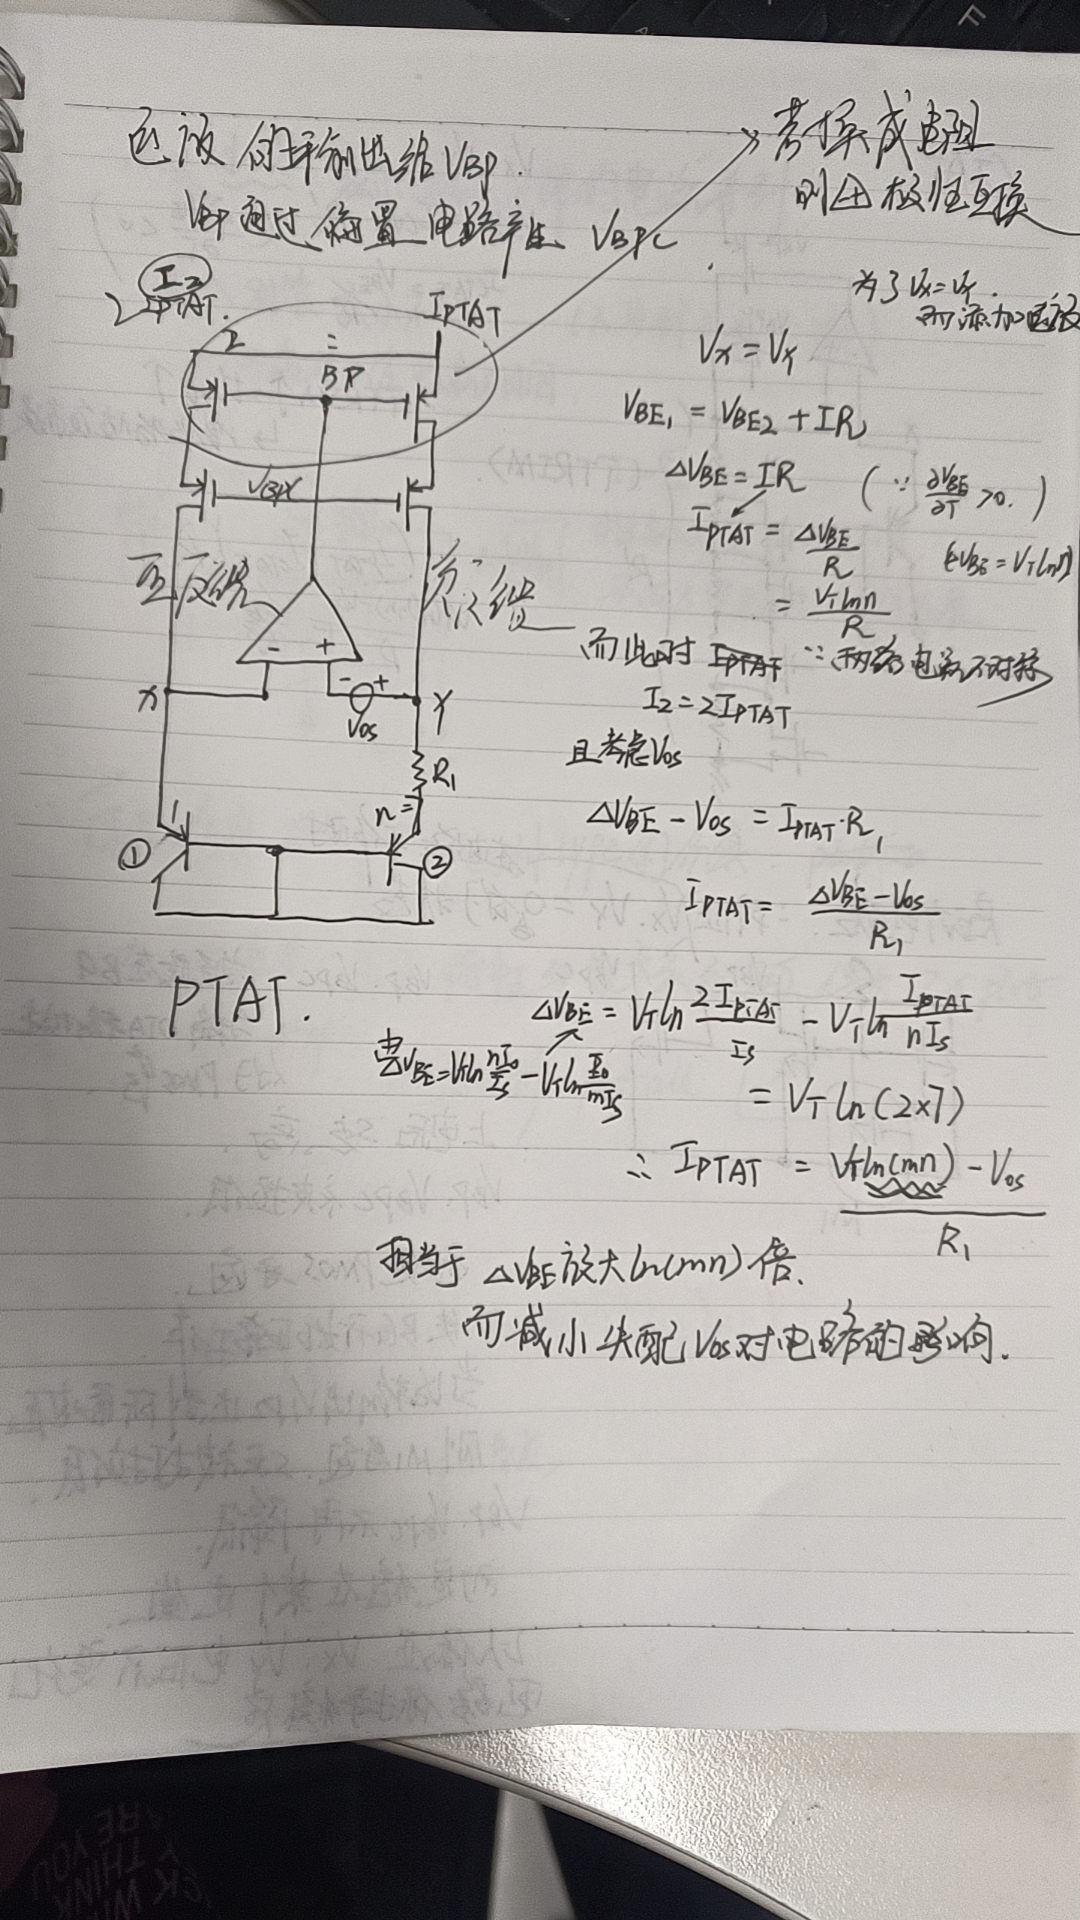 运放的输出给VBP.
VBP通过偏置电路产生 VBPC
若换成电阻
则四极性互换
I2
PTAT.
IPTAT
2 :
BP
VBPC
正反馈
负反馈
- +
- +
X
Vos
Y
R1
n=7
1
① ②
PTAT.
为了Vx=Vy.
而添加运放
Vx = Vy
VBE1 = VBE2 + IR
ΔVBE = IR (∵ ∂VBE/∂T >0. )
IPTAT = ΔVBE/R (ΔVBE = VT ln n)
= VT ln n/R
而此时 IPTAT ∵两路电流不对称
I2 = 2IPTAT
且考虑Vos
ΔVBE - Vos = IPTAT·R1
IPTAT = (ΔVBE - Vos)/R1
ΔVBE = VT ln 2IPTAT/Is - VT ln IPTAT/nIs
由ΔVBE = VT ln nI0/Is - VT ln I0/mIs
= VT ln (2×7)
∴ IPTAT = (VT ln(mn) - Vos)/R1
相当于 ΔVBE放大ln(mn)倍.
而减小失配Vos对电路的影响.